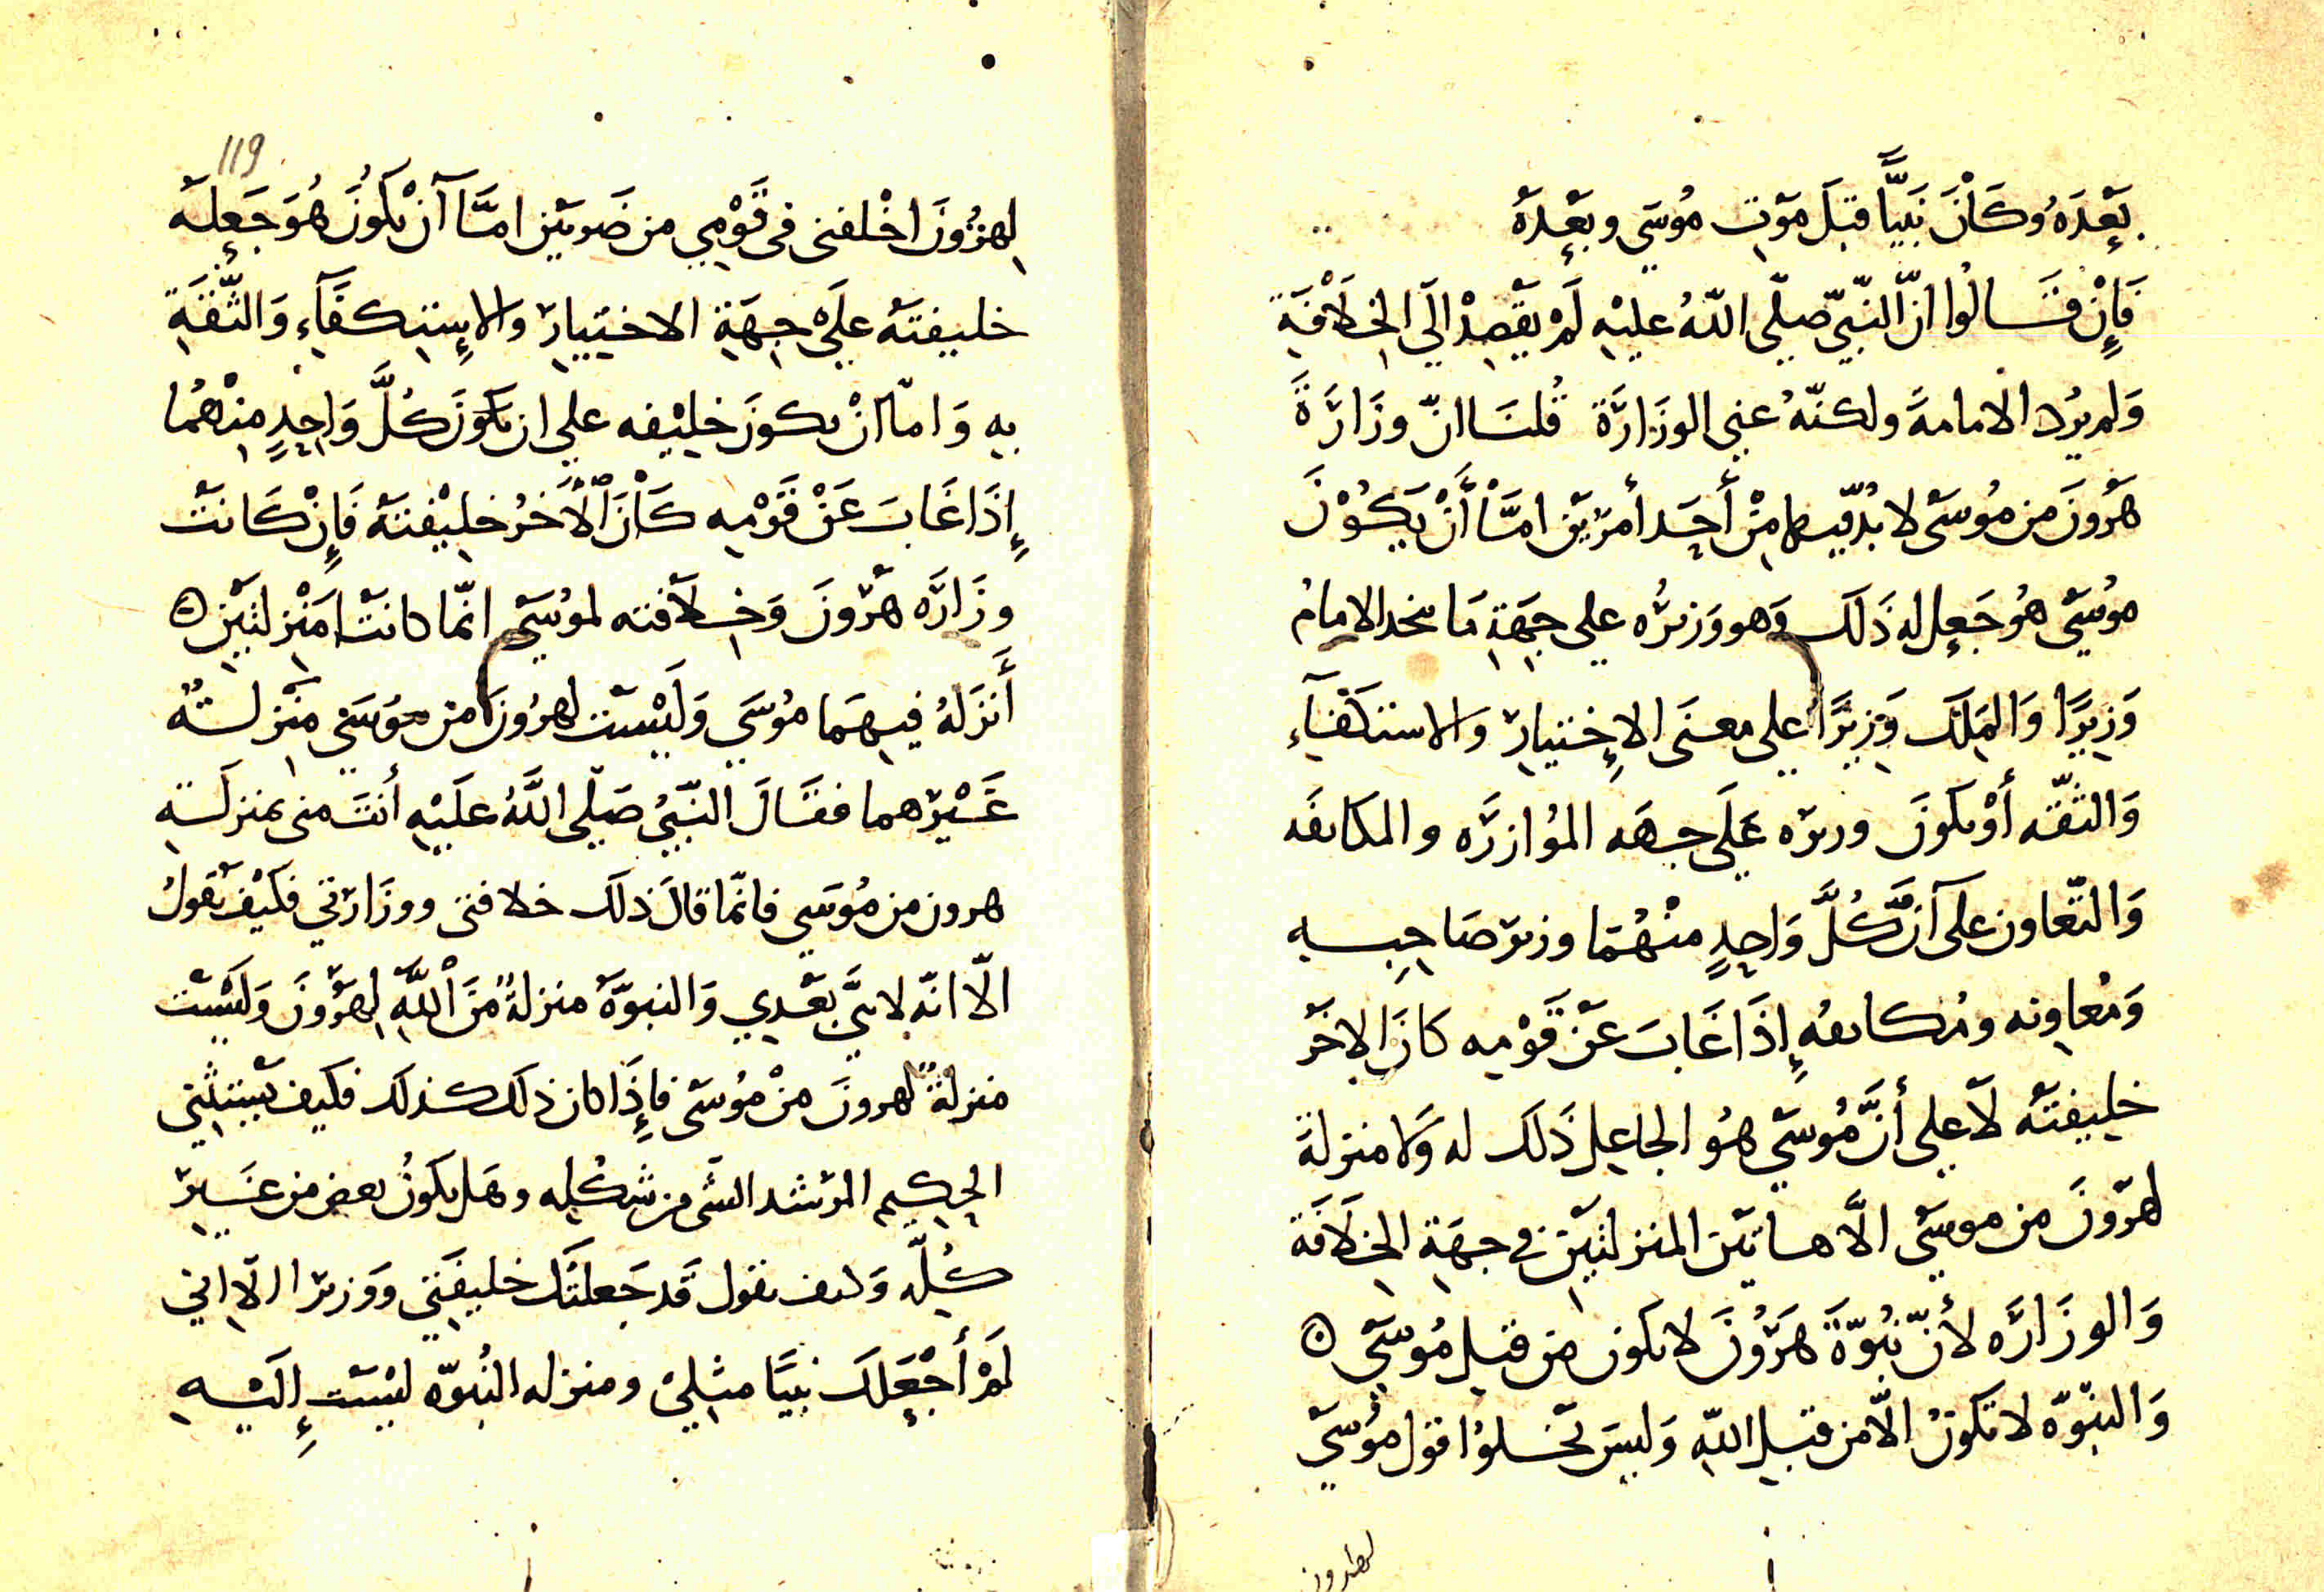 بَعْدَهُ وَكَانَ نَبِيًّا قبْلَ مَوْتِ مُوسَى وبَعْدَهُ
فَإِنْ قَالُوا انّ النّبيّ صلّى اللّهُ عليْهِ لَمْ يَقْصِدْ الَى الخِلَافَةِ
وَلم يرُد الامامةَ ولكنّهُ عنى الوزَارَة قُلنَا انّ وزَارَةَ
هَرُونَ من مُوسَى لا بُدّ فيها مِنْ أَحَدِ أمرَيْن امَّا أَنْ يَكُوْنَ
مُوسَى هُو جَعل له ذَلكَ وَهو وَزيرُه على جِهَةِ مَا يتخذ الامامُ
وَزِيرًا وَالمَلِكُ وَزِيرًا على معنَى الإِختيارِ والاستكفَاءِ
وَالثّقه أَوْ يكونَ وزيره عَلَى جهَه المُوازَرَه والمكانفَه
وَالتّعاون على أنَّ كُلَّ وَاحِدٍ منْهُمَا وزير صَاحِبِه
وَمُعاوِنه ومُكانفُه إِذَا غَابَ عَنْ قَوْمِه كانَ الاخَرُ
خليفتَه لَا على أنَّ مُوسَى هُو الجاعِل ذَلكَ له وَلا منزلةَ
لهرُونَ من موسَى الَّا هاتيْن المنزلتَيْنِ في جهَةِ الخِلَافَة
وَالوزَارَه لأَنّ نُبُوّةَ هَرُونَ لا تكون من قبلِ مُوسَى ۞
وَالنبُوّه لا تكونُ الاّ من قبلِ اللّهِ وَليسَ تخلوُا قول مُوسَى
لهرون
119
لِهرُونَ اخْلفنى فى قَوْمِي من ضَربَيْن امَّا أَنْ يَكُونَ هُوَ جَعلَه
خليفتَهُ علَى جِهَةِ الاختيارِ والاستِكفَاءِ وَالثّقَةِ
بِه وَامّا انْ يكونَ خليْفه على ان يَكونَ كُلَّ وَاحِدٍ منْهُما
إِذَا غَابَ عَنْ قَوْمِه كَانَ الْآخَرُ خليْفتَهُ فَإِنْ كَانَتْ
وزَارَه هَرُونَ وَخِلَافته لموُسَى انّما كانَتْ مَنْزلتَيْنِ ۞
أَنزَلَهُ فيهِمَا مُوسَى وَلَيْسَت لهرُونَ من مُوسَى مَنْزلةٌ
غَيْرهما فقَالَ النّبيُ صَلّى اللَّهُ علَيْهِ أنتَ منى بمنزلَةِ
هرون من مُوسَى فانّما قالَ ذلكَ خلافتى ووزَارتي فكيْفَ يقولُ
الاّ انّه لا نبيَّ بعْدِي وَالنبوّةُ منزلةٌ منَ اللَّهِ لِهَرُونَ وَلَيْسَت
منزلةً لهرونَ منْ مُوسَى فإِذَا كان ذلكَ كذلكَ فكيف يَسْتَثْني
الحكيم المرشد الشى من شكْلِه وهَل يكونُ بعض من غَيرِ
كُلّه وَكيف يقول قَد جَعلتُكَ خليفَتِي ووَزيرا الّا انى
لَمْ أَجْعَلكَ نَبِيًّا مثِلِىْ ومنزله النُبوّه ليْسَت إِلَيْهِ